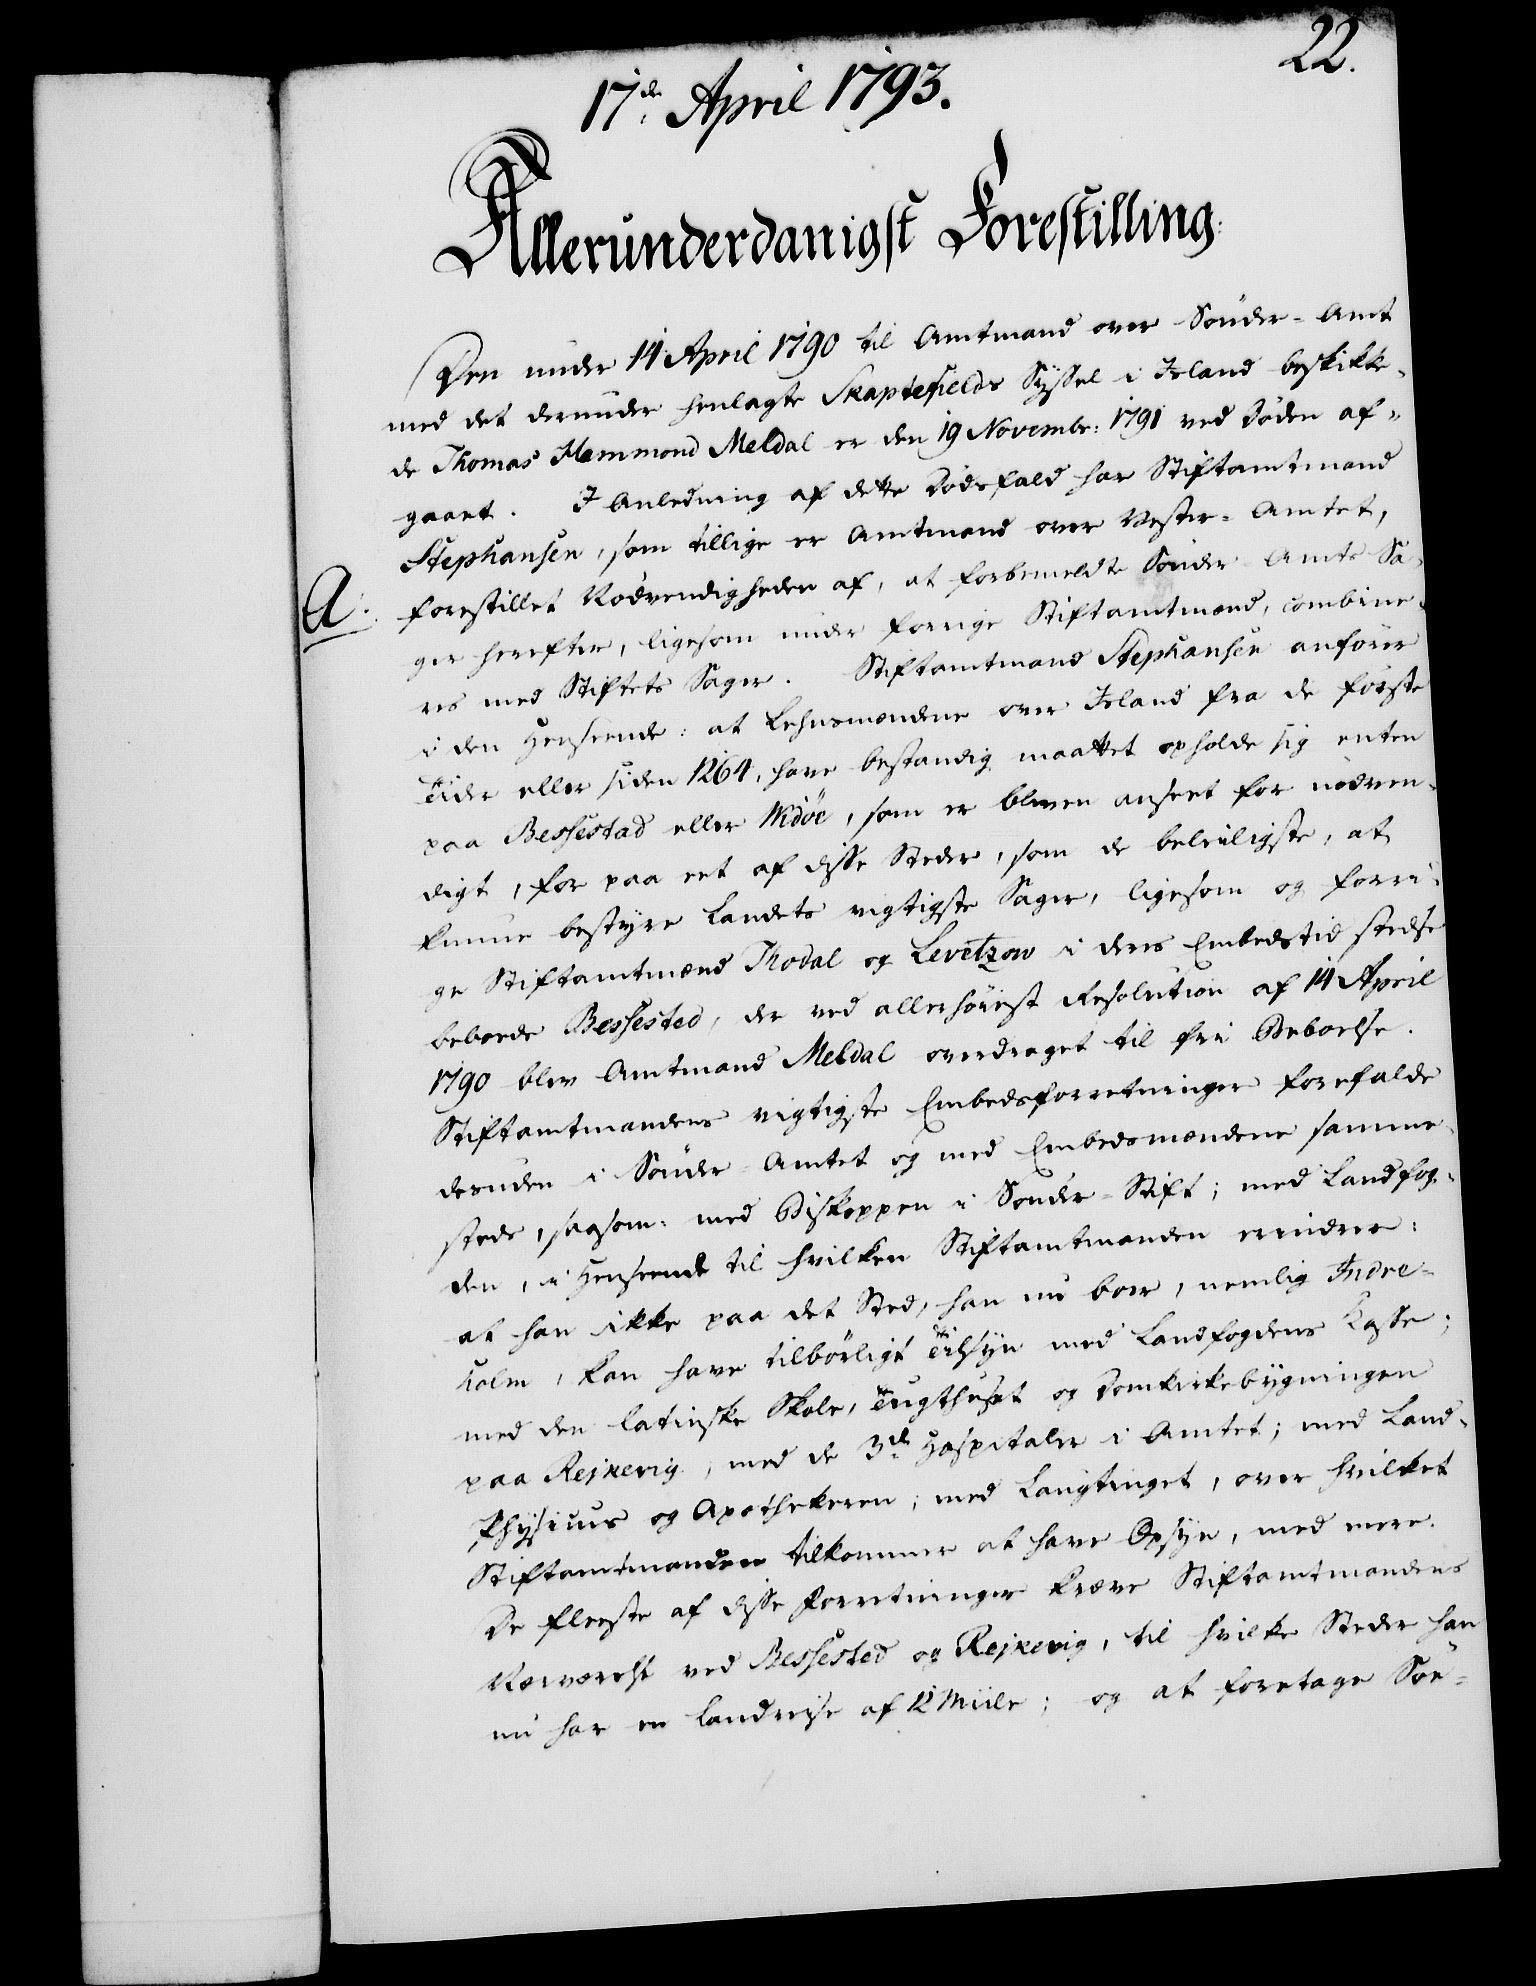 22.
17de April 1793.
Allerunderdanigst Forestilling:
Den under 14 April 1790 til Amtmand over Sönder-Amt
med det derunder henlagte Skaptefields Syssel i Island beskikke-
de Thomas Hammond Meldal er den 19 Novembr: 1791 ved Döden af-
gaaet. I Anledning af dette Dödsfald har Stiftamtmand
Stephansen, som tillige er Amtmand over Vester-Amtet,
A. forestillet Nödvendigheden af, at forbemeldte Sönder-Amts Sa-
ger herefter, ligesom under forrige Stiftamtmænd, combine-
res med Stiftets Sager. Stiftamtmand Stephansen anförer
i den Henseende: at Lehnsmændene over Island fra de förste
Tider eller siden 1264, have bestandig maattet opholde sig enten
paa Bessestad eller Widöe, som er bleven anseet for nödven-
digt, for paa eet af disse Steder, som de beleiligste, at
kunne bestyre Landets vigtigste Sager, ligesom og forri-
ge Stiftamtmænd Thodal og Levetzow i deres Embedstid stedse
beboede Bessested, der ved allerhöiest Resolution af 14 April
1790 blev Amtmand Meldal overdraget til frie Beboelse.
Stiftamtmandens vigtigste Embedsforretninger forefalde
desuden i Sönder-Amtet og med Embedsmændene samme-
steds, saasom: med Biskoppen i Sönder-Stift; med Landfog-
den, i Henseende til hvilken Stiftamtmanden erindrer:
at han ikke paa det Sted, han nu boer, nemlig Indre-
holm, kan have tilbörligt Tilsyn med Landfogdens Kasse;
med den latinske Skole, Tugthuset og Domkirkebygningen
paa Rejkevig, med de 3de Hospitaler i Amtet; med Land-
Physicus og Apothekeren; med Laugtinget, over hvilket
Stiftamtmanden tilkommer at have Opsyn, med mere.
De fleeste af disse Forretninger kræve Stiftamtmandens
Nærværelse ved Bessested og Rejkevig, til hvilke Steder han
nu har en Landreise af 12 Miile; og at foretage Söe-